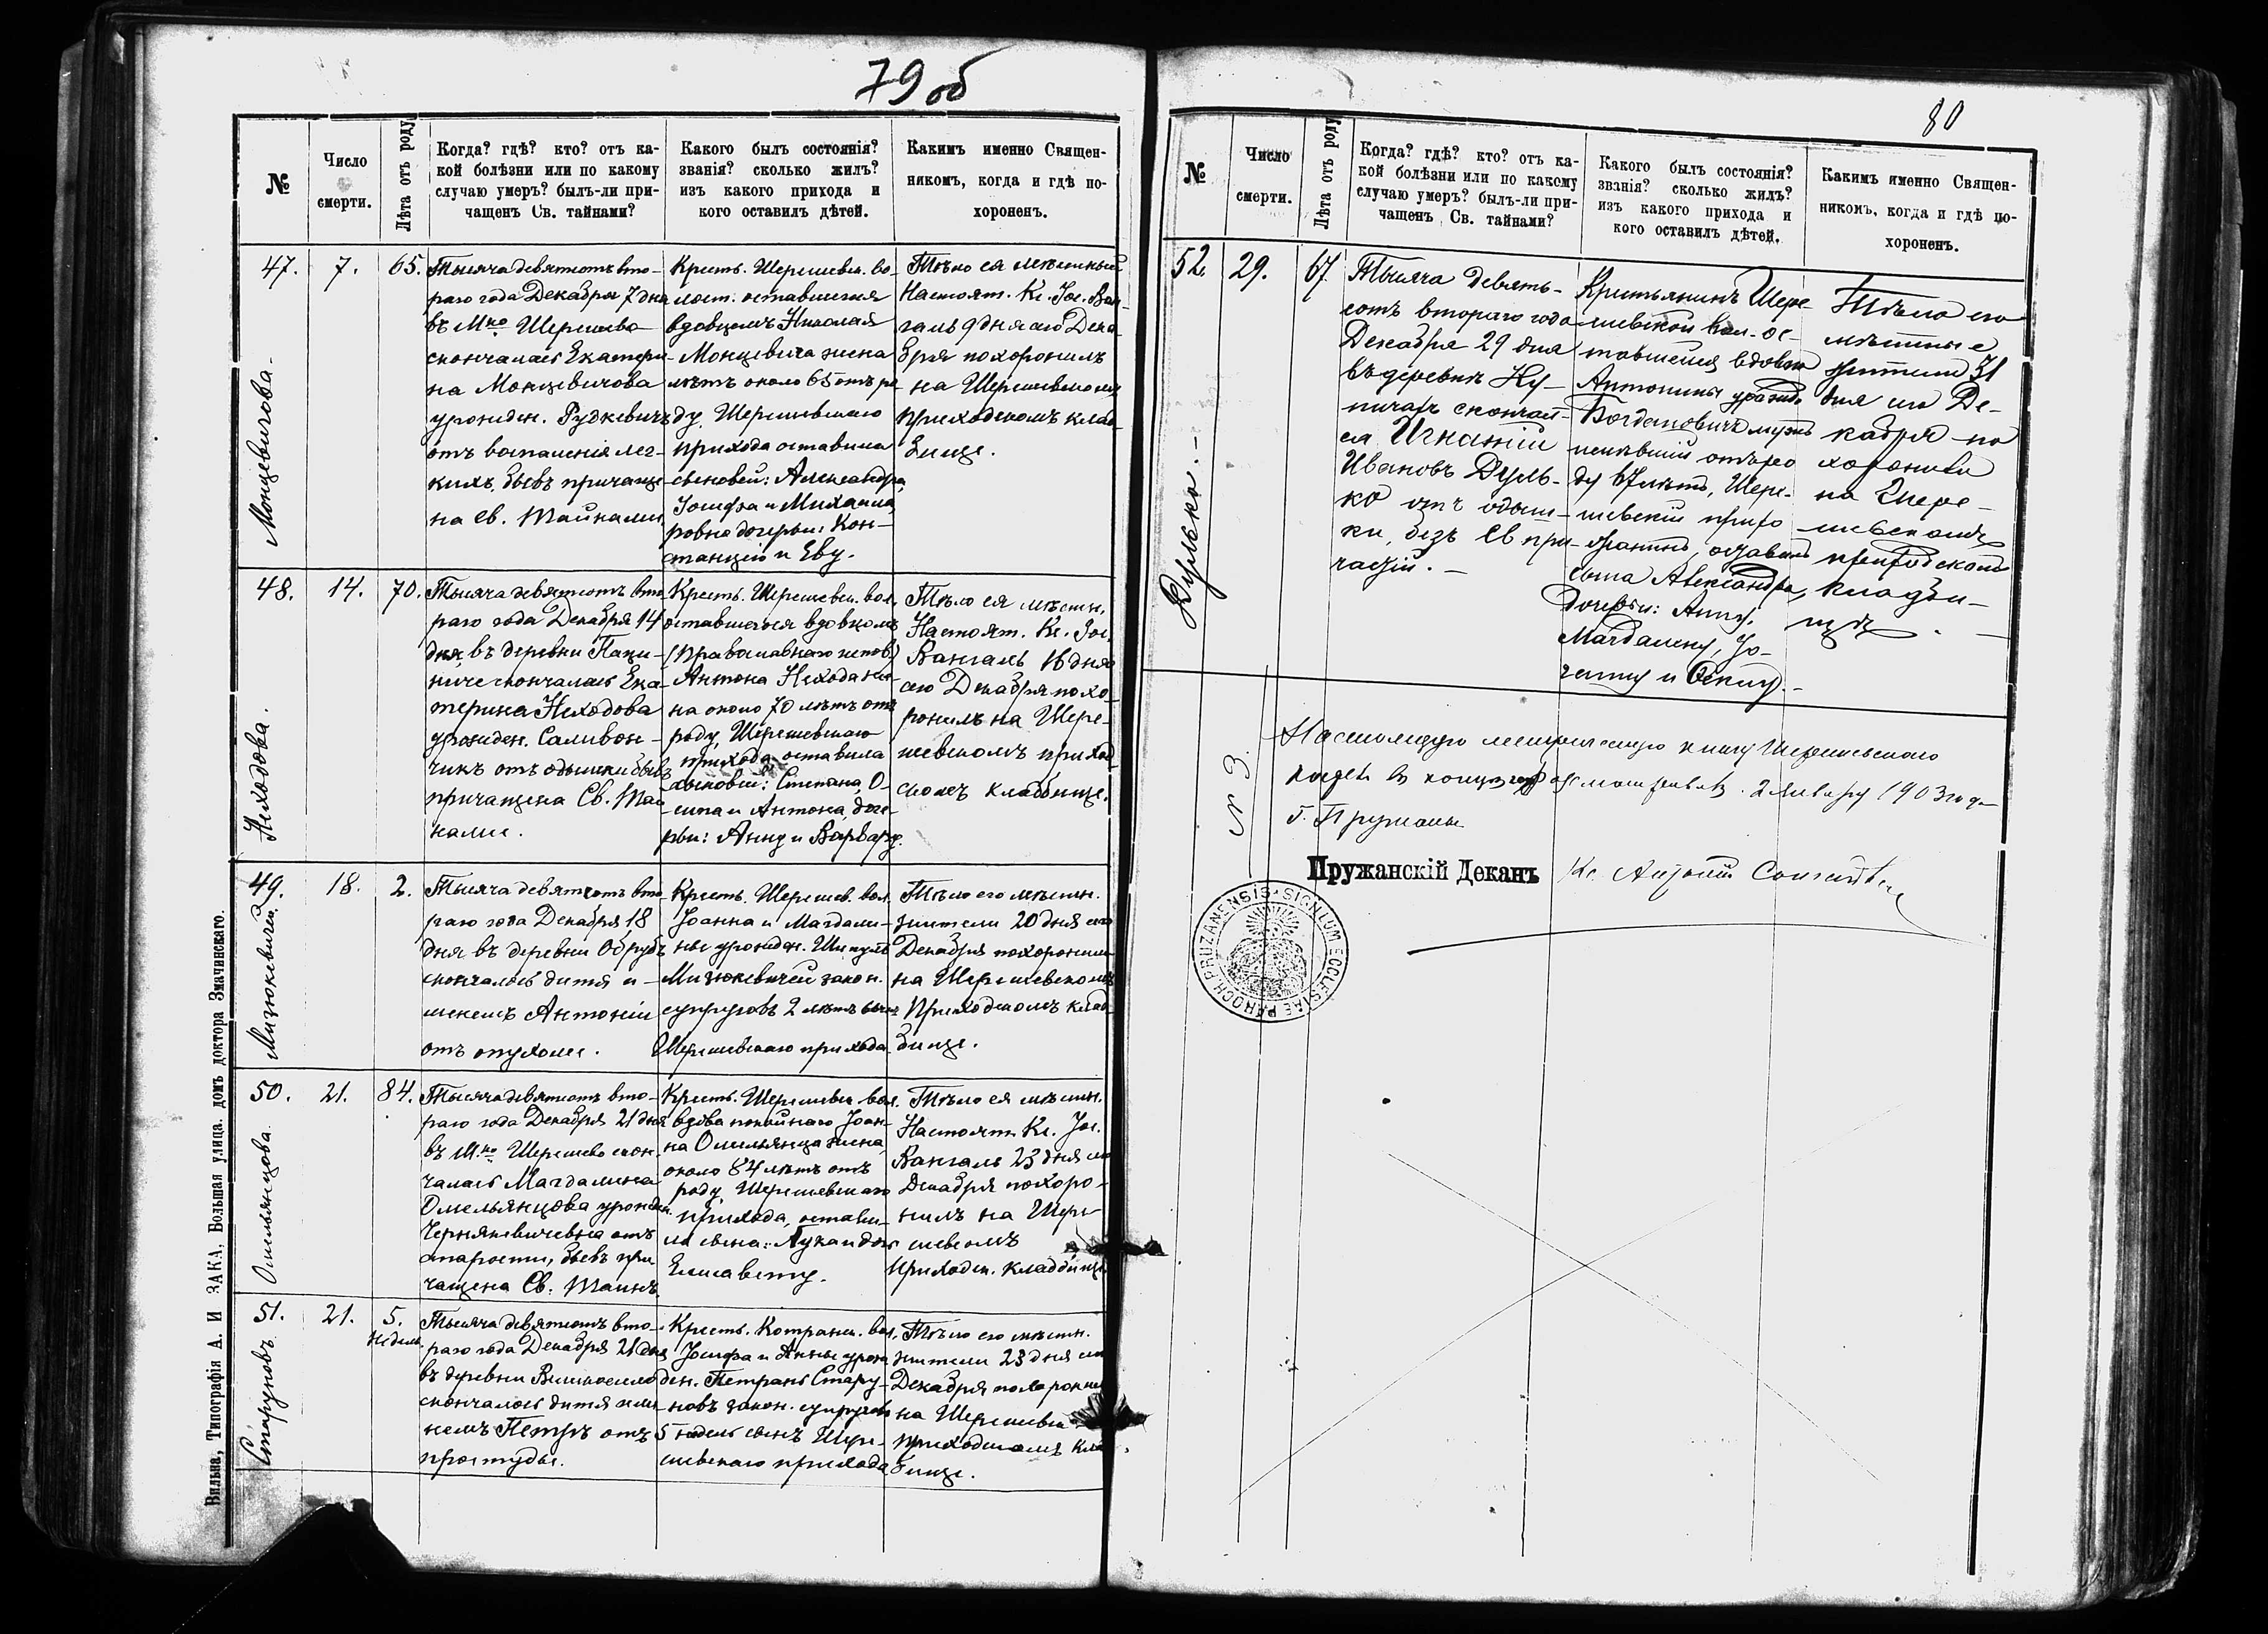 79 об
№
Число
смерти.
Лѣта отъ роду
Когда? гдѣ? кто? отъ ка-
кой болѣзни или по какому
случаю умеръ? былъ-ли при-
чащенъ Св. тайнами?
Какого былъ состоянія?
званія? сколько жилъ?
изъ какого прихода и
кого оставилъ дѣтей.
Какимъ именно Священ-
никомъ, когда и гдѣ по-
хороненъ.
47.
Монцевичова.
7.
65.
Тысяча девятьсотъ вто-
раго года Декабря 7 дня
въ М-ко Шерешево
скончалась Екатери-
на Монцевичова
урожден. Рудкевичъ
отъ воспаленія лег-
кихъ, бывъ причаще-
на Св. Тайнами.
Крест. Шерешевск. во-
лост. оставшегося
вдовцомъ Николая
Монцевича жена
лѣтъ около 65 отъ ро-
ду, Шерешевскаго
прихода оставила
сыновей: Александра,
Іосифа и Михаила,
ровно дочерей: Кон-
станцію и Еву.
Тѣло ея мѣстный
Настоят. Кс. Іос. Вон-
галь 9 дня сего Дека-
бря похоронилъ
на Шерешевскомъ
приходскомъ клад-
бище.
48.
Неходова.
14.
70.
Тысяча девятьсотъ вто-
раго года Декабря 14
дня, въ деревни Паци-
ниче скончалась Ека-
терина Неходова
урожден. Саливон-
чикъ отъ одышки бывъ
причащена Св. Тай-
нами.
Крест. Шерешевск. вол.
оставшегося вдовцомъ
(православнаго испов.)
Антона Нехода же-
на около 70 лѣтъ отъ
роду, Шерешевскаго
прихода, оставила
сыновей: Степана, О-
сипа и Антона, доче-
рьи: Анну и Варвару.
Тѣло ея мѣстн.
Настоят. Кс. Іос.
Вонгаль 16 дня
сего Декабря похо-
ронилъ на Шере-
шевскомъ приход-
скомъ кладбище.
49.
Мизюкевичъ.
18.
2.
Тысяча девятьсотъ вто-
раго года Декабря 18
дня въ деревни Обрубъ
скончалось дитя и-
менемъ Антоній
отъ опухоли.
Крест. Шерешев. вол.
Іоанна и Магдали-
ны урожден. Шикуль
Мизюкевичей закон.
супруговъ 2 лѣтъ сынъ
Шерешевскаго прихода.
Тѣло его мѣстн.
жители 20 дня сего
Декабря похоронили
на Шерешевскомъ
Приходскомъ клад-
бище.
50.
Омельянцова.
21.
84.
Тысяча девятьсотъ вто-
раго года Декабря 21 дня
въ М-ко Шерешево скон-
чалась Магдалина
Омельянцова урожден.
Чернякевичевна отъ
старости, бывъ при-
чащена Св. Таинъ.
Крест. Шерешевск. вол.
вдова покойнаго Іоан-
на Омельянца жена,
около 84 лѣтъ отъ
роду, Шерешевскаго
прихода, остави-
ла сына: Лука и доч
Елисавету.
Тѣло ея мѣстн.
Настоят. Кс. Іос.
Вонгаль 23 дня сего
Декабря похоро-
нилъ на Шере-
шевскомъ
приходск. кладбище
51.
Старуновъ
21.
5.
недель
Тысяча девятьсотъ вто-
раго года Декабря 21 дня
въ деревни Великоселе
скончалось дитя име-
немъ Петръ отъ
простуды.
Крест. Котранск. вол.
Іосифа и Анны урож-
ден. Петрань Стару-
новъ закон. супруговъ
5 недель сынъ Шере-
шевскаго прихода.
Тѣло его мѣстн.
жители 23 дня сего
Декабря похоронили
на Шерешевск.
приходскомъ клад-
бище.
Вильна, Типографія А. И ЗАКА, Большая улица. домъ доктора Змачинскаго.
80
№
Число
смерти.
Лѣта отъ роду
Когда? гдѣ? кто? отъ ка-
кой болѣзни или по какому
случаю умеръ? былъ-ли при-
чащенъ Св. тайнами?
Какого былъ состоянія?
званія? сколько жилъ?
изъ какого прихода и
кого оставилъ дѣтей.
Какимъ именно Священ-
никомъ, когда и гдѣ по-
хороненъ.
52.
Дулько.
29.
67.
Тысяча девять-
сотъ второго года
Декабря 29 дня
въ деревнѣ Ку-
ничахъ скончал-
ся Игнатій
Ивановъ Дуль-
ко отъ одыш-
ки, безъ Св. при-
частій.
Крестьянинъ Шере-
шевской вол. ос-
тавшейся вдовою
Антонины урожд.
Богдановичъ мужъ
имѣвшій отъ ро-
ду 67 лѣтъ, Шере-
шевскій прихо-
жанинъ, оставилъ
сына Александра,
дочерьи: Анну,
Магдалену,
и
Тѣло его
мѣстные
жители 31
дня сего Де-
кабря по-
хоронили
на Шере-
шевскомъ
приходскомъ
кладби-
щѣ.
№ 3.
Настоящую метрическую книгу Шерешевскаго
2 Января 1903 года
г. Пружаны
Пружанскій Деканъ Кс.
SIGILLUM ECCLESIAE PAROCH PRUZANENSIS